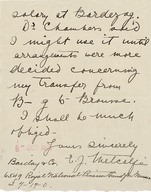 salary at Barclay og.
Dr Chambers said
I might use it until
arrangements were more
decided concerning
my transfer from
B— g to Browne.
I shall be much
oblig-
Yours sincerely
Barclay & Co. E. J. Metcalfe